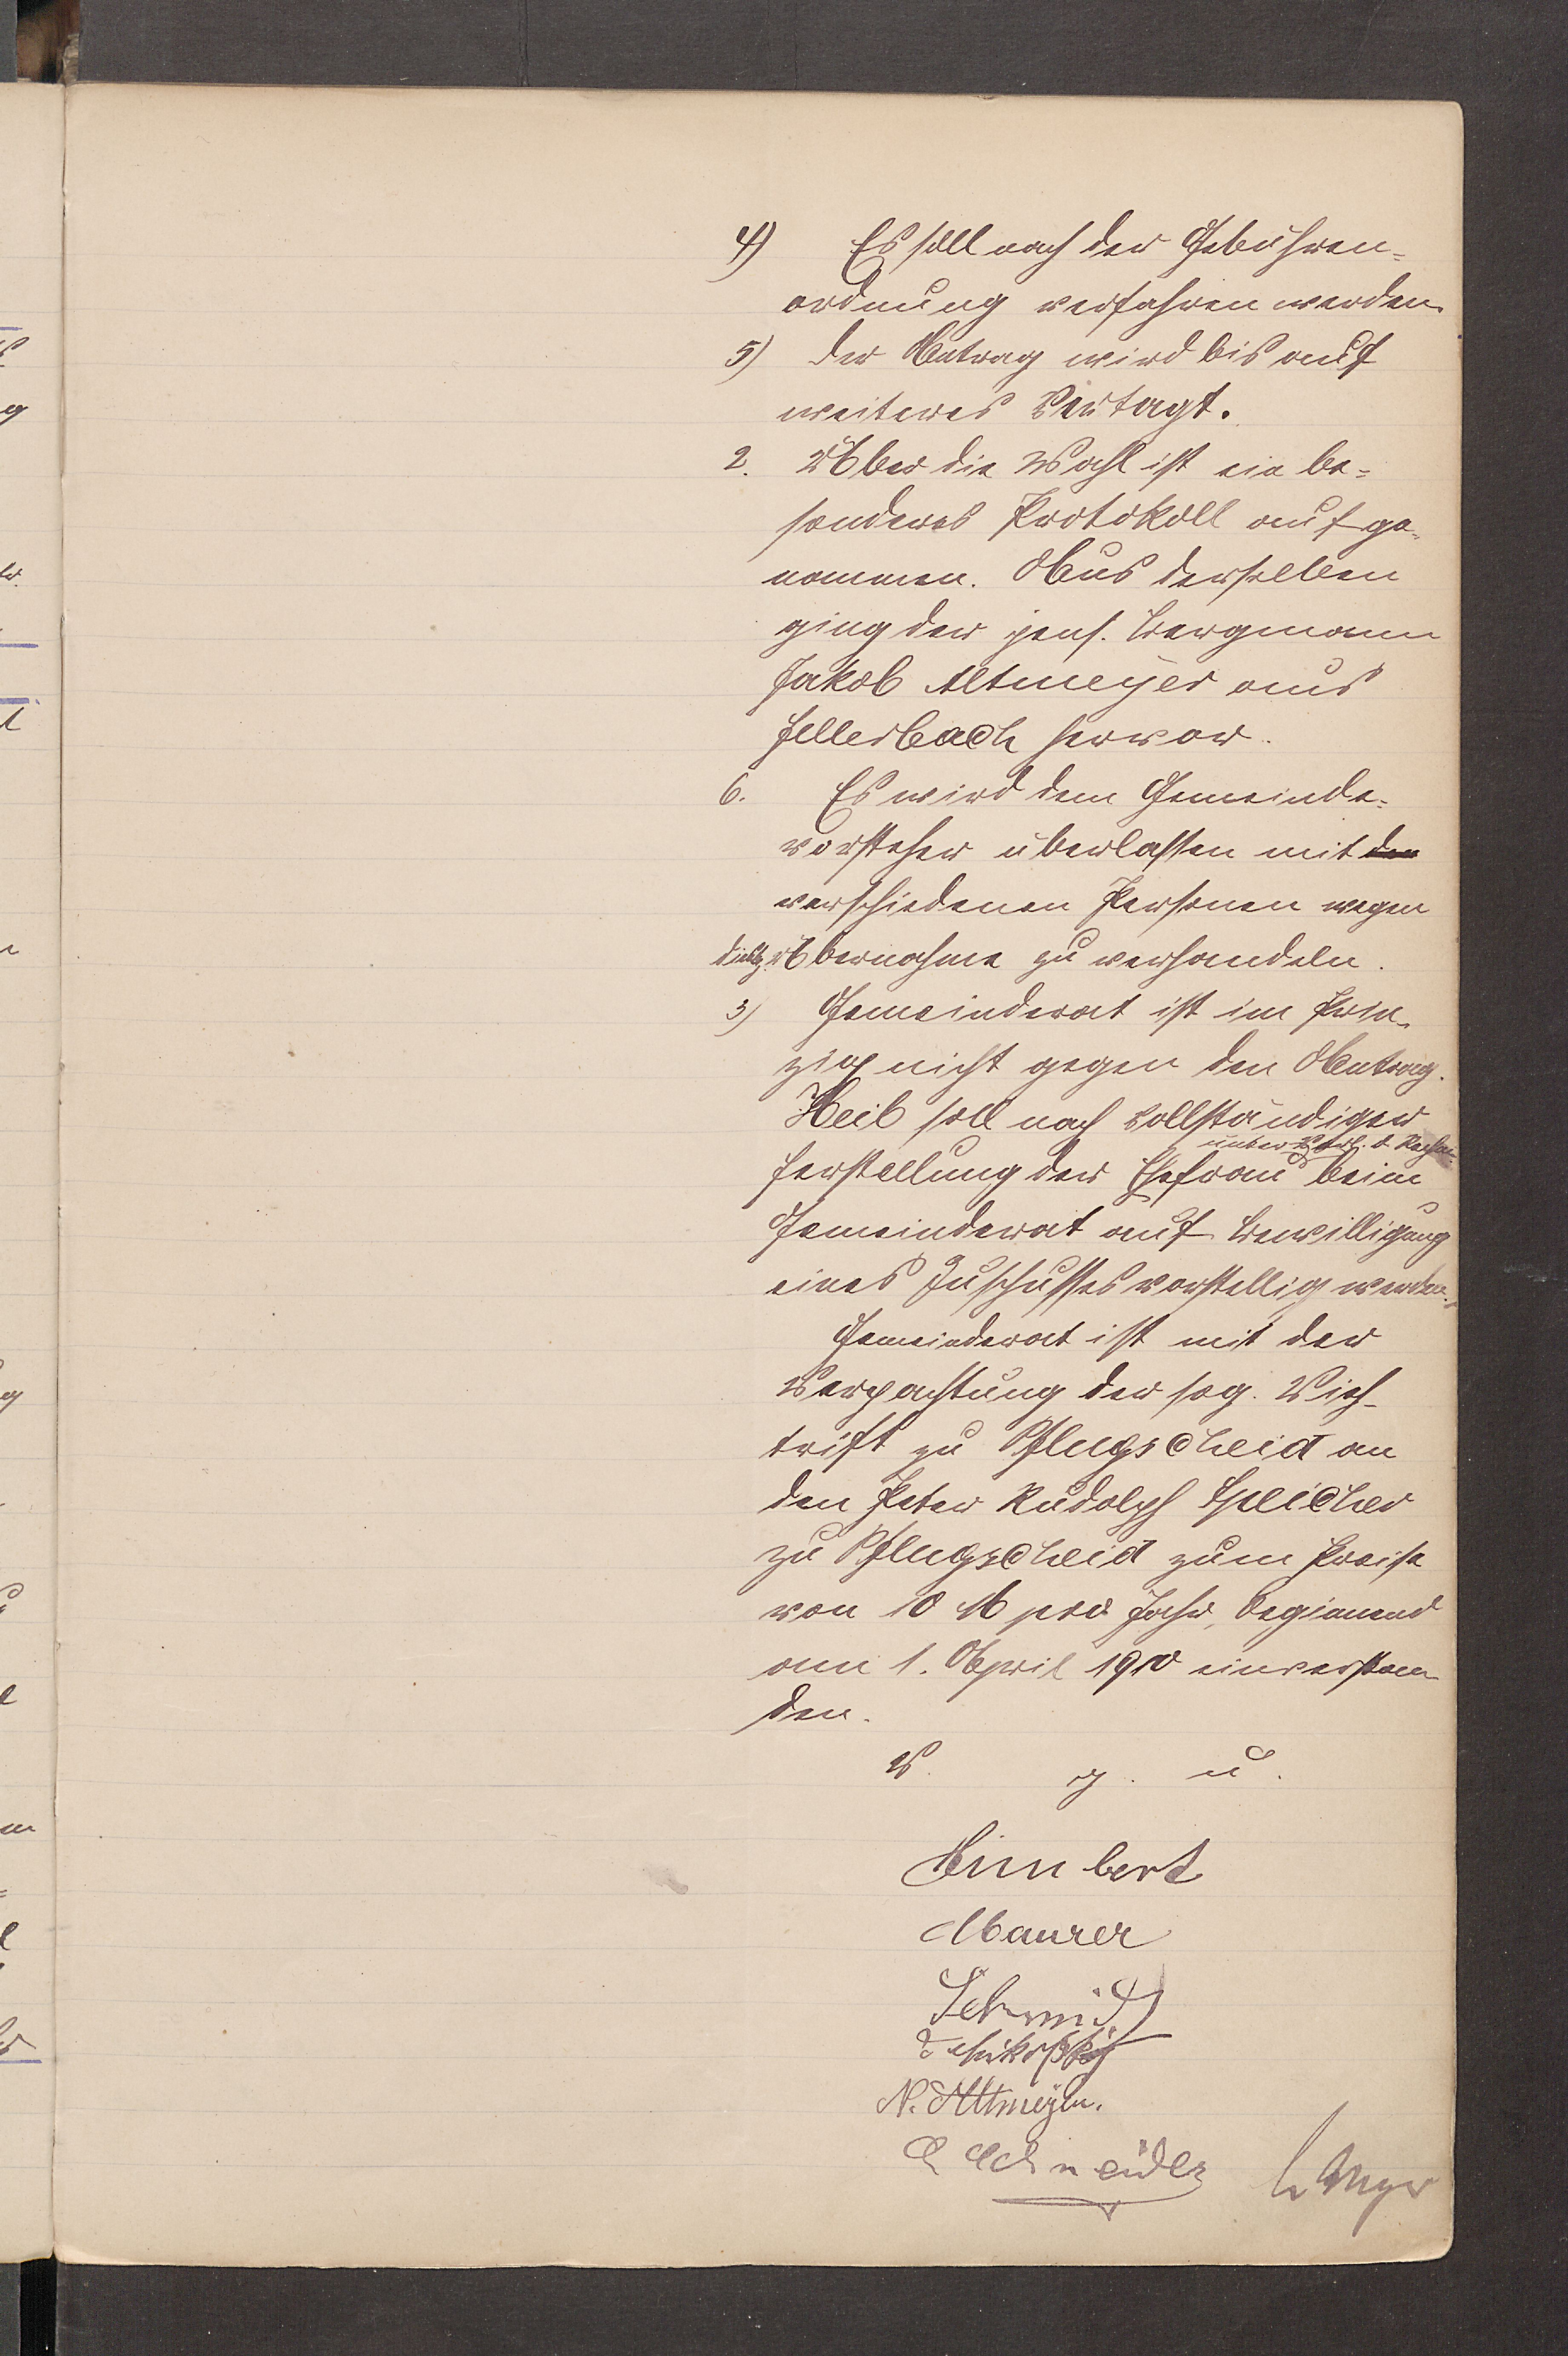 4) Es soll nach der Gebühren-
ordnung verfahren werden.
5) Der Antrag wird bis auf
weiteres vertagt.
2. Über die Wahl ist ein be-
sonderes Protokoll aufge-
nommen. Aus derselben
ging der pens. Bergmann
Jakob Altmeyer aus
Hellerbach hervor.
6. Es wird dem Gemeinde-
vorsteher überlassen mit den
verschiedenen Personen wegen
Übernahme zu verhandeln.
3) Gemeinderat ist im Prin-
zip nicht gegen den Antrag.
Heib soll nach vollständiger
unter Vorl. d. Rechn.
Herstellung der Ehefrau beim
Gemeinderat auf Bewilligung
eines Zuschusses vorstellig werden.
Gemeinderat ist mit der
Verpachtung der sog. Vieh-
trift zu Pflugscheid an
den Peter Rudolph Speicher
zu Pflugscheid zum Preise
von 10 M pro Jahr, beginnend
am 1. April 1910 einverstan
den.
V. g. u.
Himbert
Maurer
Schmidt
N. Altmeyer.
Schneider